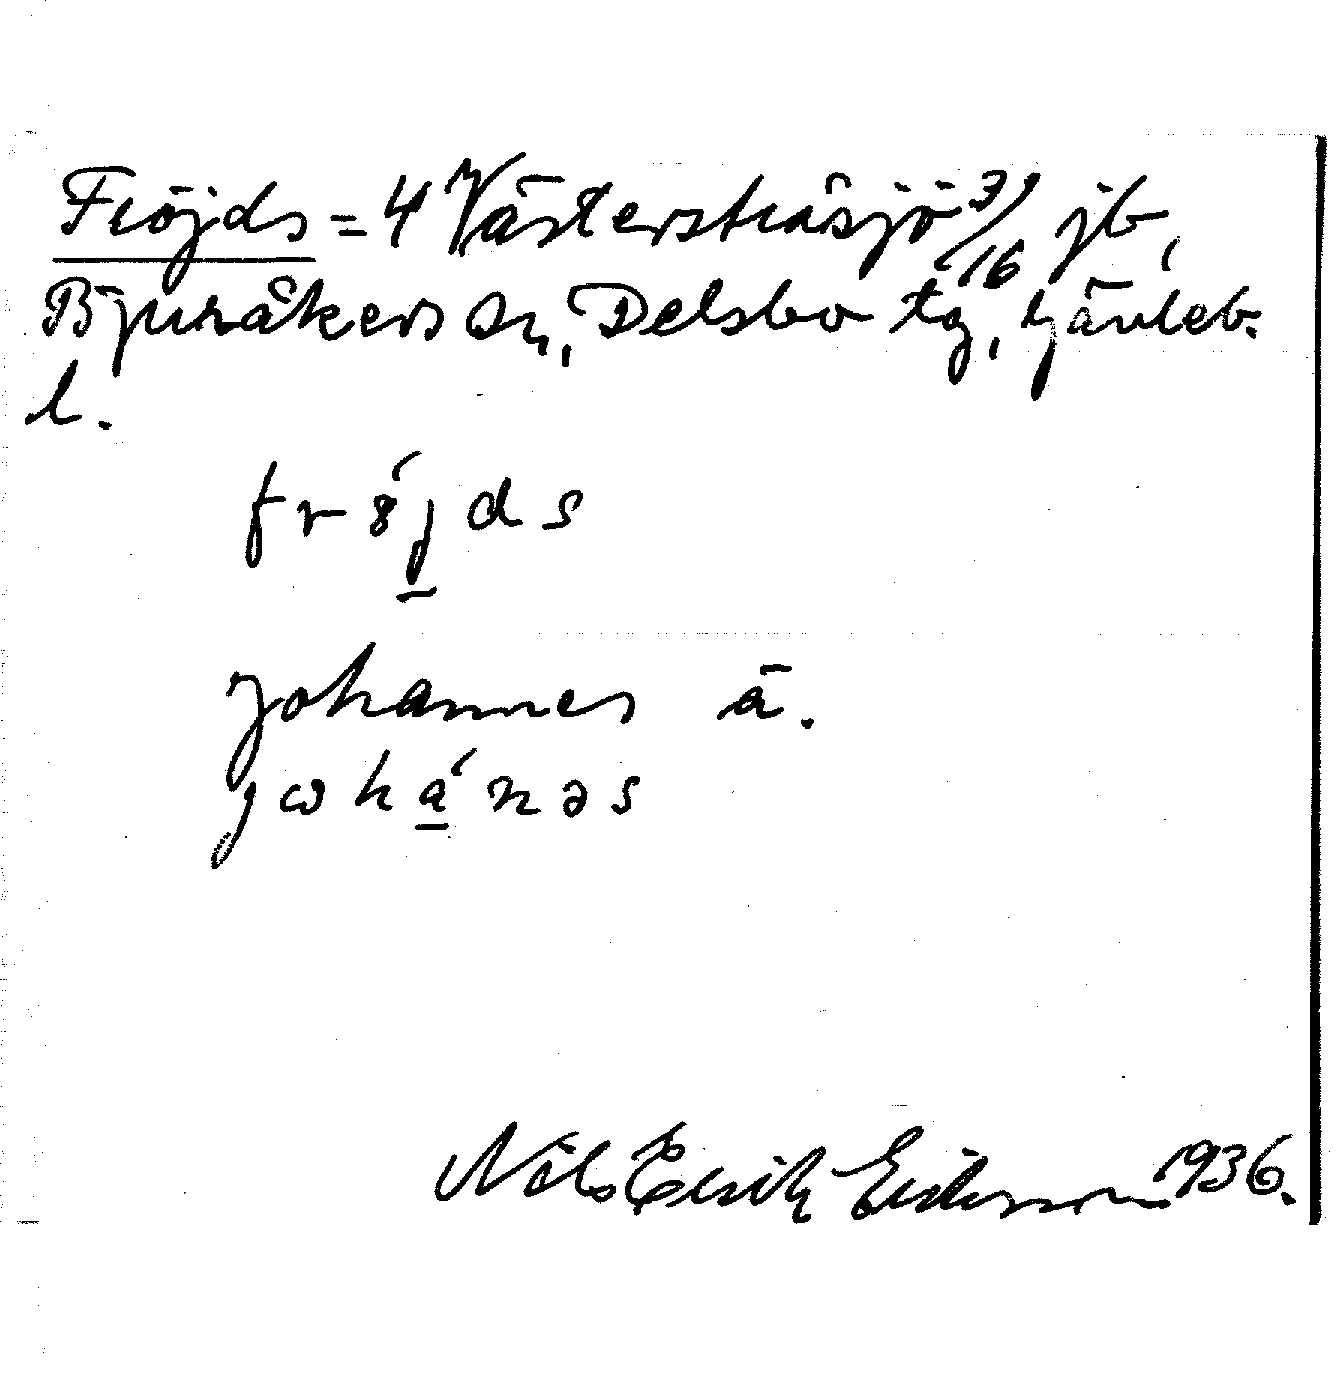 Fröjds = 4 Västerstråsjö 3/16 jb,
Bjuråkers sn, Delsbo tg, Gävleb.
l.
frǿjds
Johannes ä.
jωhánəs
Nils Erik Eriksson 1936.